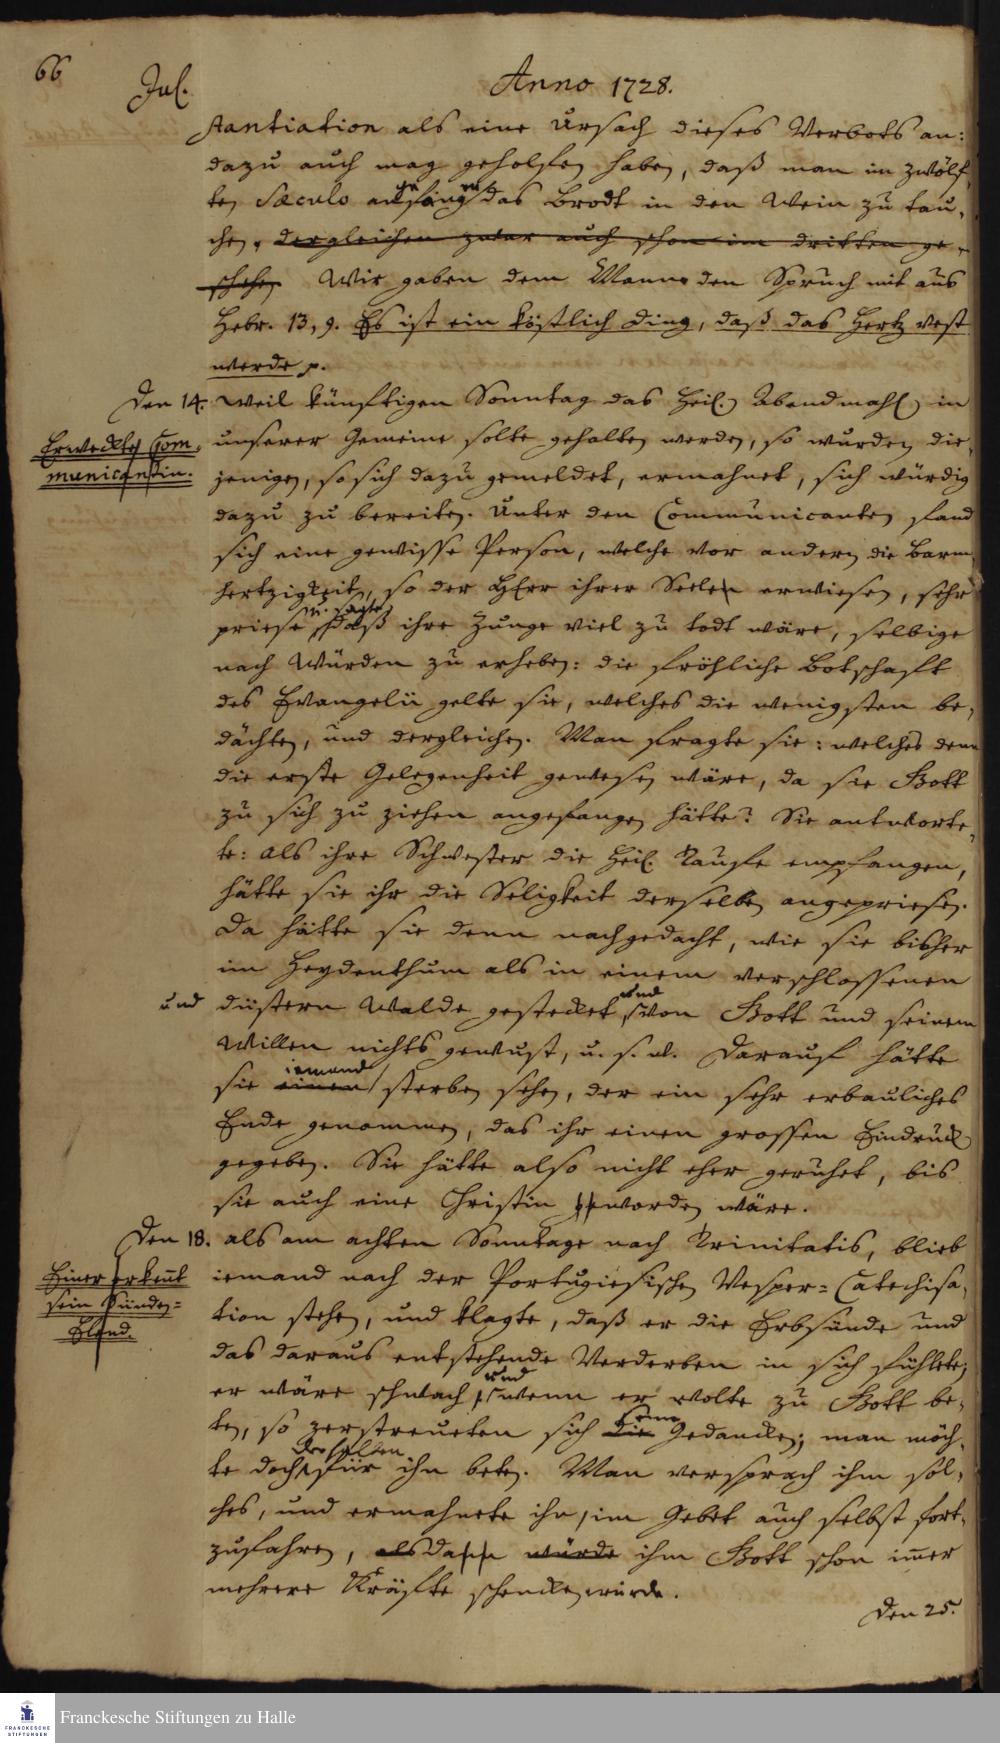 66
Jul.
Anno 1728.
stantiation als eine Ursach dieses Verbots an:
dazu auch mag geholfen haben, daß man im zwölf-
ten Sæculo anfing das Brodt in den Wein zu tau-
chen, dergleichen zwar auch schon im dritten ge-
schehen. Wir gaben dem Manne den Spruch mit aus
Hebr. 13, 9. Es ist ein köstlich Ding, daß das Hertz vest
werde p.
Den 14. Weil künftigen Sonntag das Heil. Abendmahl in
Erweckte Com-
municantin.
unserer Gemeine solte gehalten werden, so wurden die-
jenigen, so sich dazu gemeldet, ermahnet, sich würdig
dazu zu bereiten. Unter den Communicanten fand
sich eine gewisse Person, welche vor andern die Barm-
hertzigkeit, so der HErr ihrer Seelen erwiesen, sehr
u. sagte
priese, daß ihre Zunge viel zu todt wäre, selbige
nach Würden zu erheben: die fröhliche Botschaft
des Evangelii gelte sie, welches die wenigsten be-
dächten, und dergleichen. Man fragte sie: welches denn
die erste Gelegenheit gewesen wäre, da sie Gott
zu sich zu ziehen angefangen hätte? Sie antworte-
te: als ihre Schwester die Heil. Taufe empfangen,
hätte sie ihr die Seligkeit derselben angepriesen.
Da hätte sie denn nachgedacht, wie sie bisher
im Heydenthum als in einem verschlossenen
und düstern Walde gestecket, und von Gott und seinem
Willen nichts gewust, u. s. w. Darauf hätte
sie einen jemand sterben sehen, der ein sehr erbauliches
Ende genommen, das ihr einen grossen Eindruck
gegeben. Sie hätte also nicht eher geruhet, bis
sie auch eine Christin geworden wäre.
Den 18. als am achten Sonntage nach Trinitatis, blieb
Einer erkent
sein Sünden-
Elend.
iemand nach der Portugiesischen Vesper-Catechisa-
tion stehen, und klagte, daß er die Erbsünde und
das daraus entstehende Verderben in sich fühlete;
er wäre schwach, und wenn er wolte zu Gott be-
ten, so zerstreueten sich die seine Gedancken; man möch-
te doch deshalben für ihn beten. Man versprach ihm sol-
ches, und ermahnete ihn, im Gebet auch selbst fort-
zufahren, als da würde ihm Gott schon immer
mehrere Kräfte schencken würde.
Den 25.
FRANCKESCHE
STIFTUNGEN
Franckesche Stiftungen zu Halle